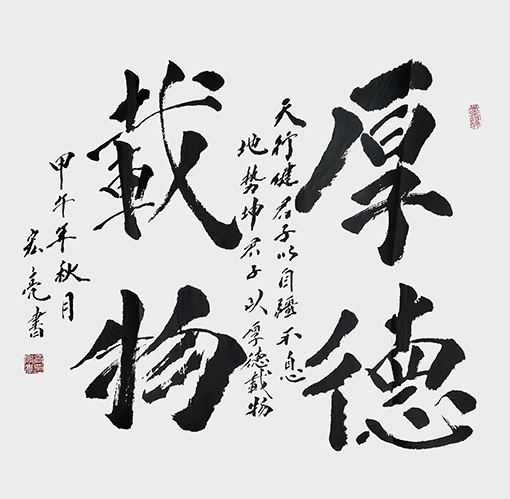 厚德
載物
天行健君子以自疆不息
地势坤君子以厚德載物
甲午年秋月
宏亮書